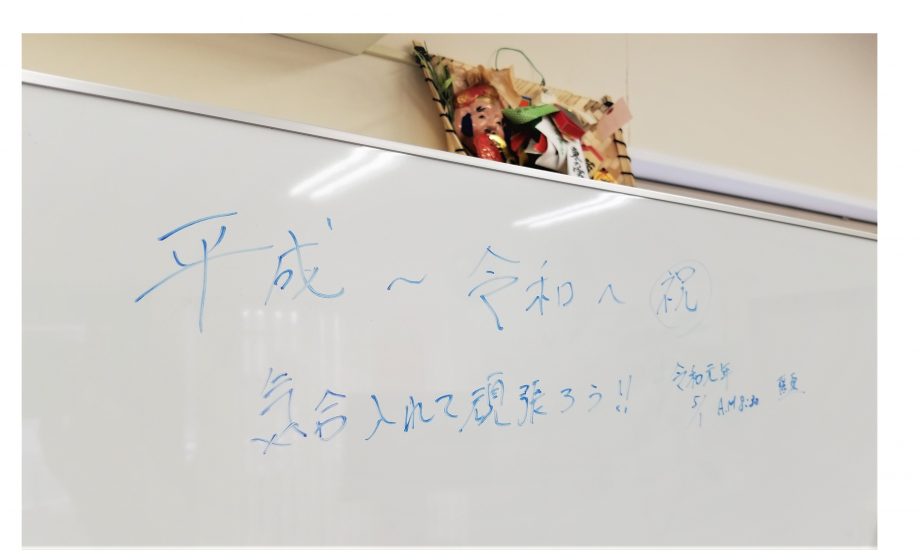 平成～令和へ ㊗
気合入れて頑張ろう!!
令和元年
5/1 A.M 8:30